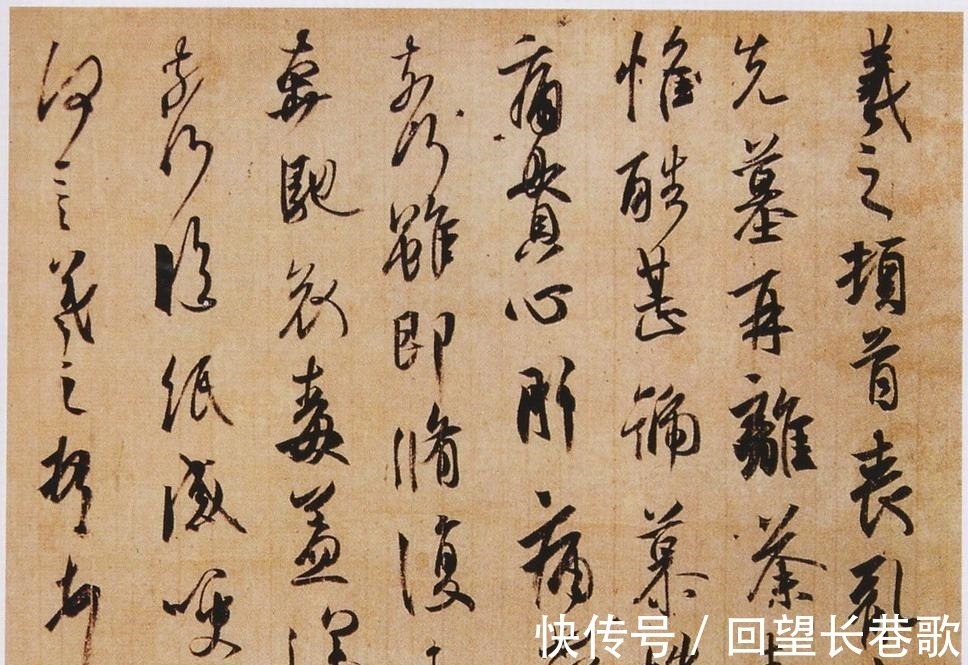 羲之頓首喪亂
先墓再離荼
惟酷甚號慕
痛貫心肝痛
奈何雖即脩復
奔馳哀毒益深
奈何臨紙感哽
何言羲之頓首
快传号 / 回望长巷歌